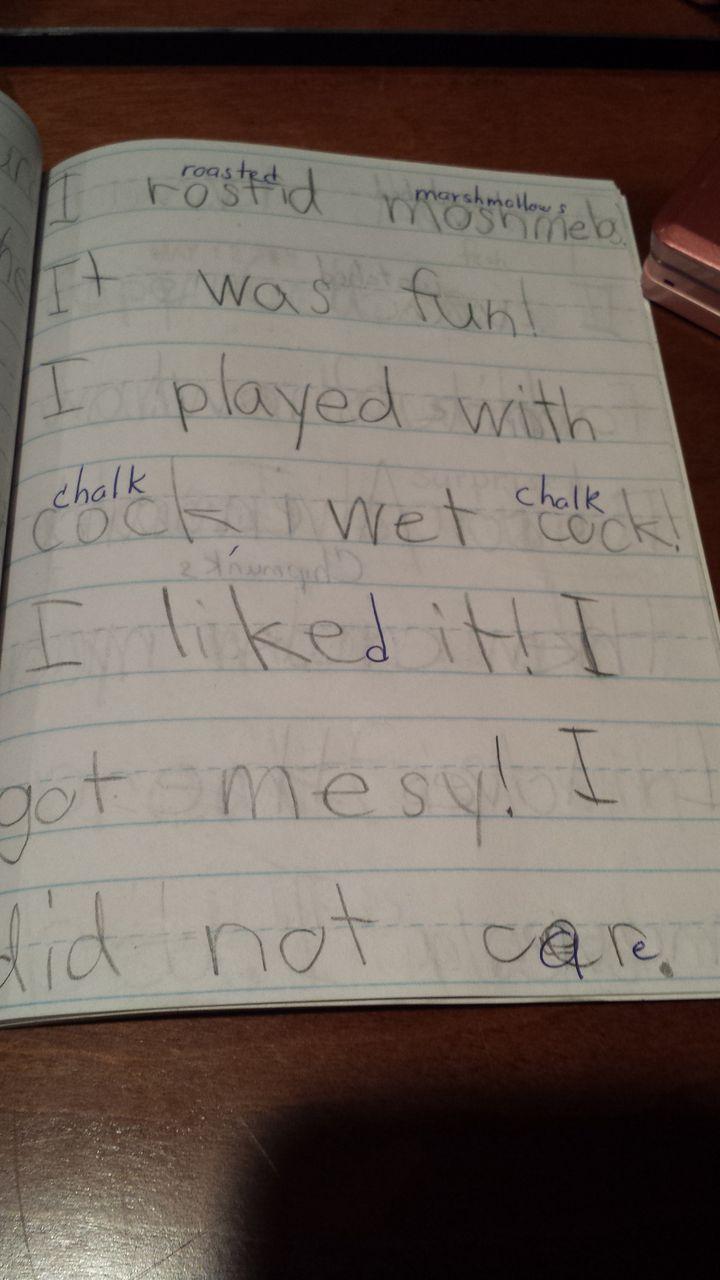 roasted marshmallows
I rostid moshmebs.
It was fun!
I played with
chalk chalk
cock wet cock!
I liked it! I
got mesy! I
did not care.